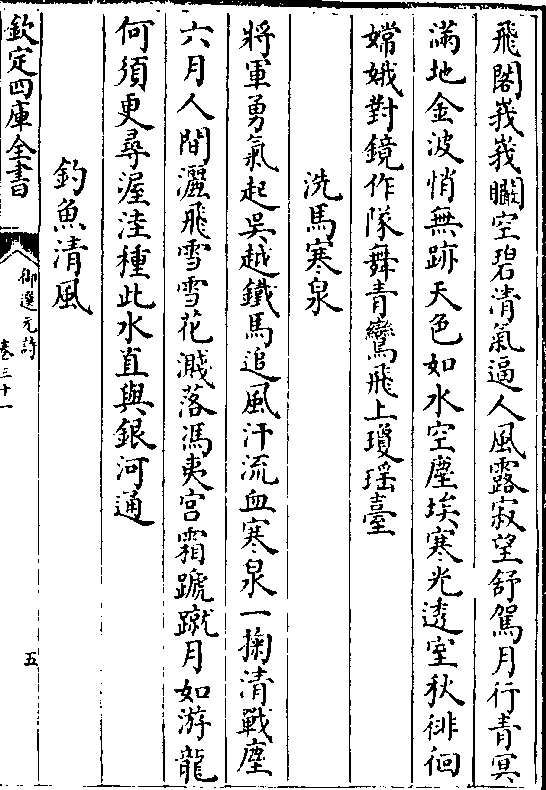 飛閣峩峩瞰空碧清氣逼人風露寂望舒駕月行青冥
滿地金波悄無跡天色如水空塵埃寒光透室秋徘徊
嫦娥對鏡作隊舞青鸞飛上瓊瑶臺
洗馬寒泉
將軍勇氣起吳越鐵馬追風汗流血寒泉一掬清戰塵
六月人間灑飛雪雪花濺落馮夷宮霜蹏蹴月如游龍
何須更尋渥洼種此水直與銀河通
釣魚清風
欽定四庫全書
御選元詩
卷三十一
五